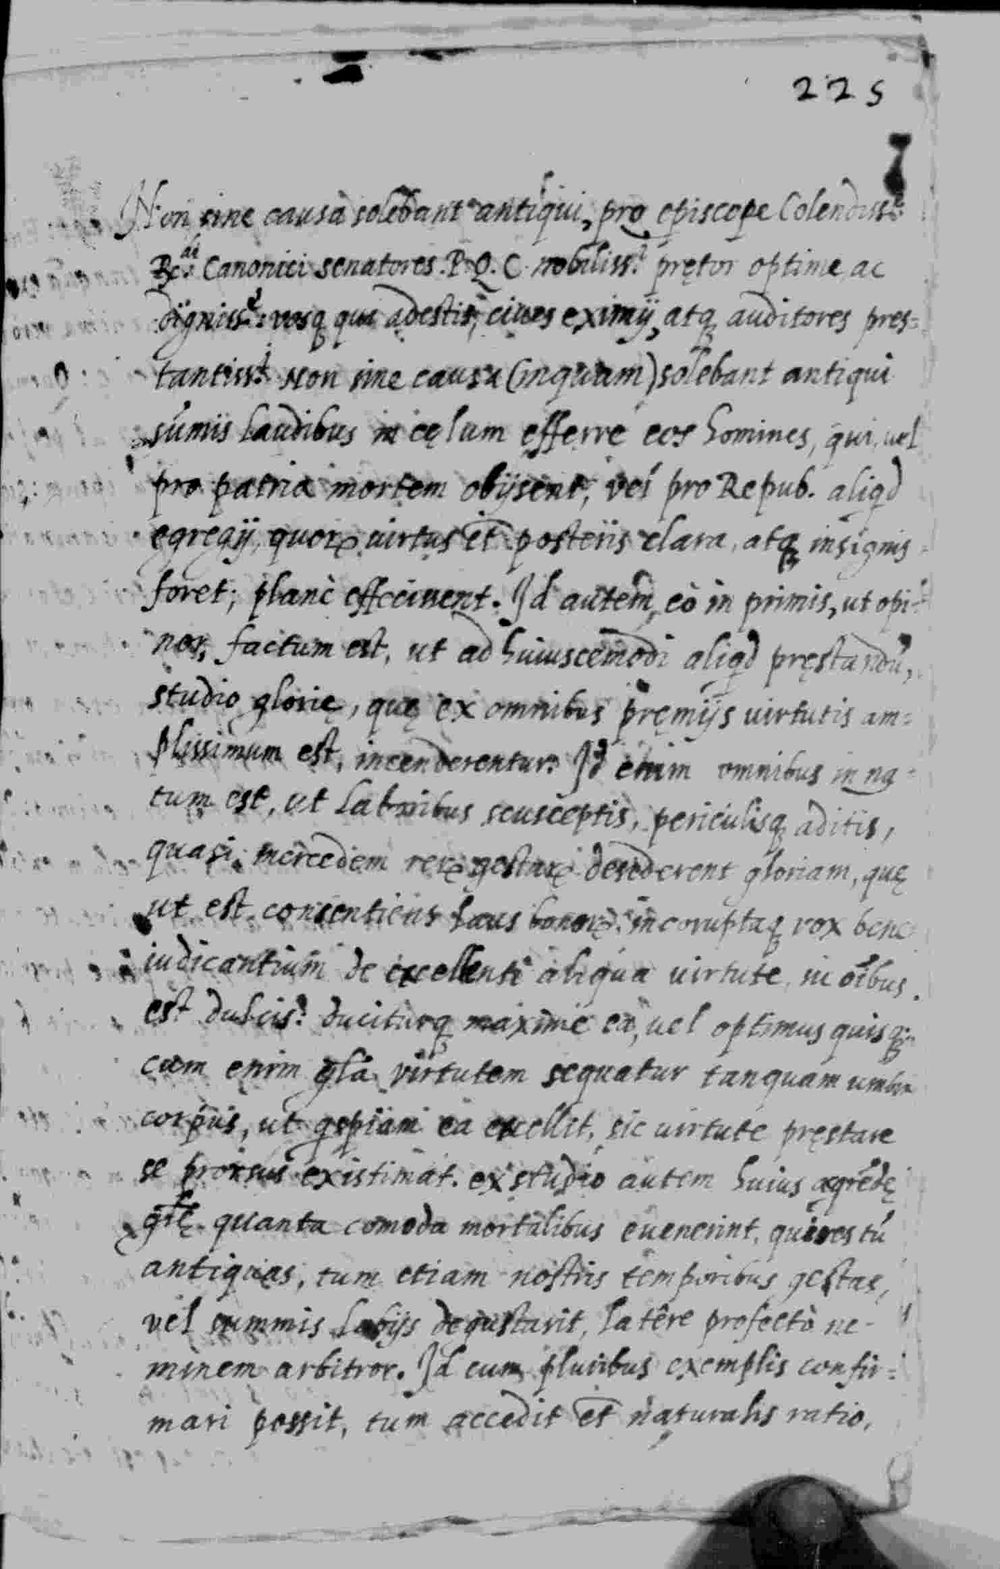 225
7
Non sine causa solebant antiqui, pro episcope Colendiss.e
R.di Canonici senatores. P. Q. C. nobiliss.i prętor optime, ac
digniss.e vosq qui adestis, ciues eximij, atq auditores pres=
tantiss.i Non sine causa (inquam) solebant antiqui
sumis laudibus in cęlum efferre eos homines, qui, uel
pro patria mortem obijsent, vel pro Repub. aliqd
egregij, quorꝝ uirtus et posteris clara, atq insignis
foret; planè effecissent. Id autem, eò in primis, ut opi-
nor, factum est, ut ad huiuscemodi aliqd pręstandũ,
studio glorię, quę ex omnibus pręmijs uirtutis am=
plissimum est, incenderentur. Id enim omnibus inna=
tum est, ut laboribus susceptis, periculisq aditis,
quasi mercedem rerꝝ gestarꝝ desederent gloriam, quę
ut est consentiens laus bonorꝝ incoruptaq vox bene
iudicantium de excellenti aliqua virtute, in oĩbus
est dulcis: duciturq maxime ea, vel optimus quisq;
cum enim glã virtutem sequatur tanquam umbra
corpus, ut qspiam ea excellit, sic uirtute pręstare
se prorsus existimat. ex studio autem huius
quanta comoda mortalibus euenerint, qui res tũ
antiquas, tum etiam nostris temporibus gestas,
vel summis labijs degustarit, latêre profectò ne-
minem arbitror. Id cum pluribus exemplis confir=
mari possit, tum accedit et naturalis ratio,